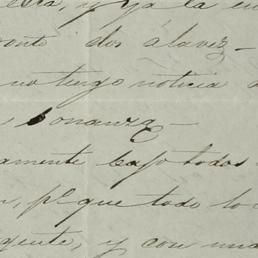 esta, y ya la en
onto dos á la vez –
no tengo noticia
bonanza –
amente bajo todos
pr. que todo lo
gente, y con una